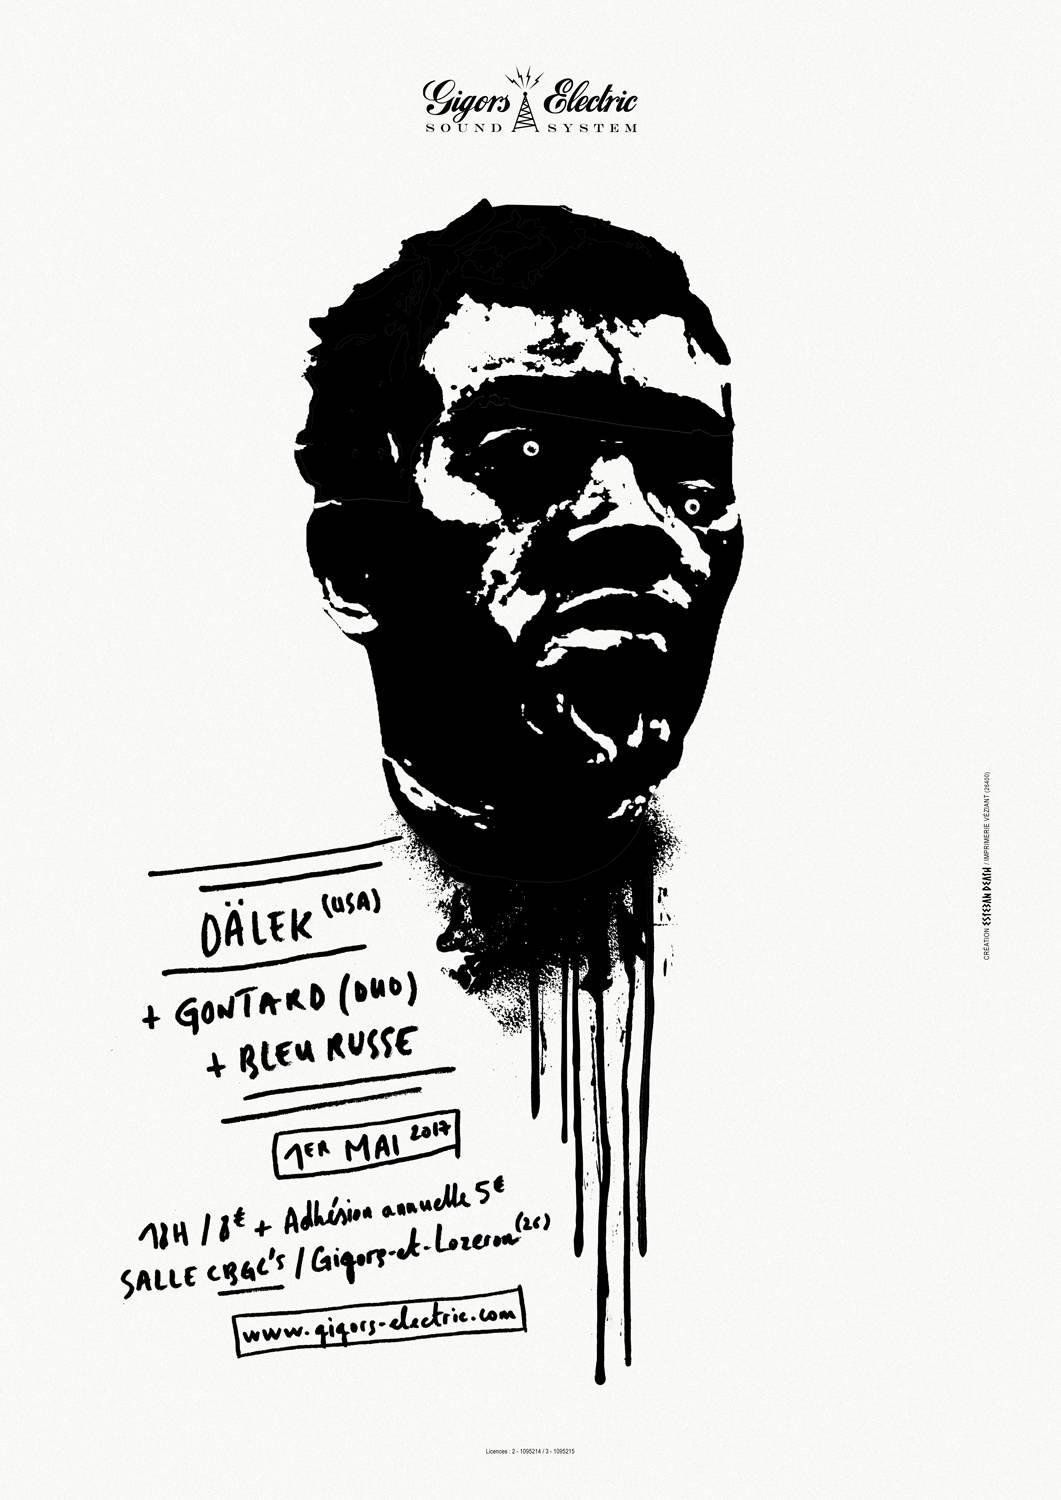 Gigors Electric
SOUND SYSTEM
DÄLEK (USA)
+ GONTARD (DUO)
+ BLEU RUSSE
1ER MAI 2017
18H / 8€ + Adhésion annuelle 5€
SALLE CBGC's / Gigors-et-Lozeron (26)
www.gigors-electric.com
CRÉATION ESTEBAN DEASH / IMPRIMERIE VÉZIANT (26400)
Licences : 2 - 1095214 / 3 - 1095215